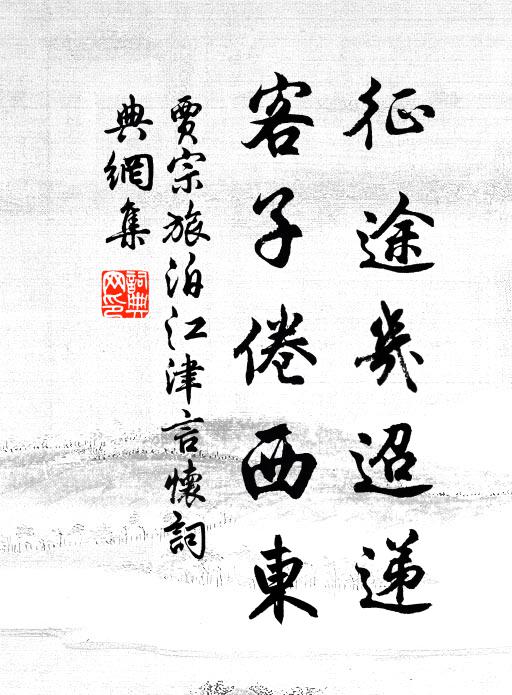 征途幾迢递
客子倦西東
賈宗旅泊江津言懷詞
典網集
詞典
网印